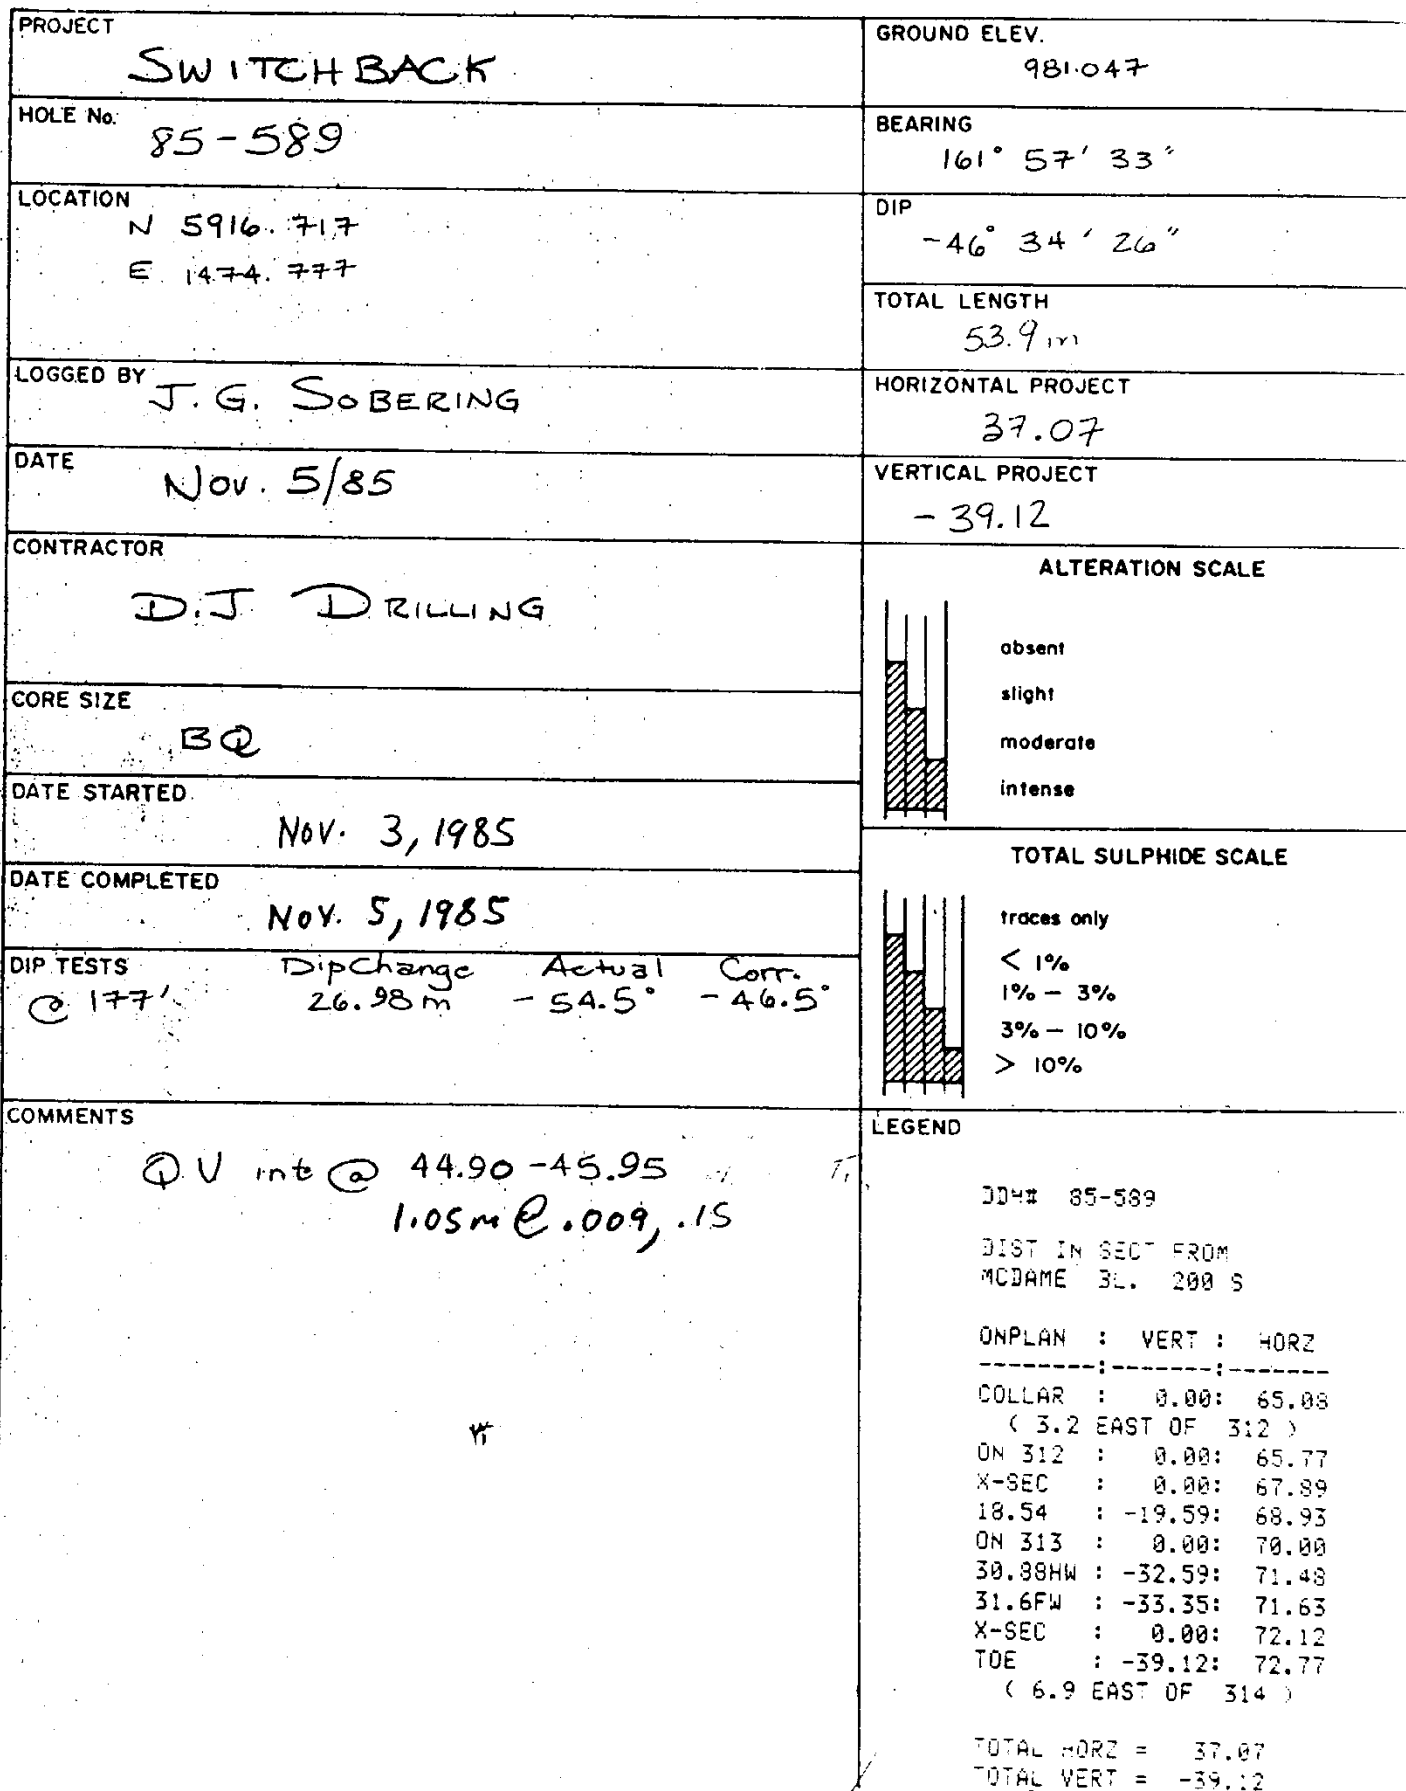 PROJECT
SWITCHBACK
HOLE No.
85-589
LOCATION
N 5916.717
E 1474.777
LOGGED BY
J.G. SOBERING
DATE
Nov. 5/85
CONTRACTOR
D.J DRILLING
CORE SIZE
BQ
DATE STARTED
Nov. 3, 1985
DATE COMPLETED
Nov. 5, 1985
DIP TESTS
DipChange Actual Corr.
@ 177' 26.98m -54.5° -46.5°
COMMENTS
Q.V int @ 44.90-45.95
1.05m @ .009, .15
GROUND ELEV.
981.047
BEARING
161° 57' 33"
DIP
-46° 34' 26"
TOTAL LENGTH
53.9 m
HORIZONTAL PROJECT
37.07
VERTICAL PROJECT
-39.12
ALTERATION SCALE
absent
slight
moderate
intense
TOTAL SULPHIDE SCALE
traces only
< 1%
1% - 3%
3% - 10%
> 10%
LEGEND
DDH# 85-589
DIST IN SECT FROM
MCDAME BL. 200 S
ONPLAN : VERT : HORZ
--------:-------:-------
COLLAR : 0.00: 65.08
( 3.2 EAST OF 312 )
ON 312 : 0.00: 65.77
X-SEC : 0.00: 67.89
18.54 : -19.59: 68.93
ON 313 : 0.00: 70.00
30.88HW : -32.59: 71.48
31.6FW : -33.35: 71.63
X-SEC : 0.00: 72.12
TOE : -39.12: 72.77
( 6.9 EAST OF 314 )
TOTAL HORZ = 37.07
TOTAL VERT = -39.12